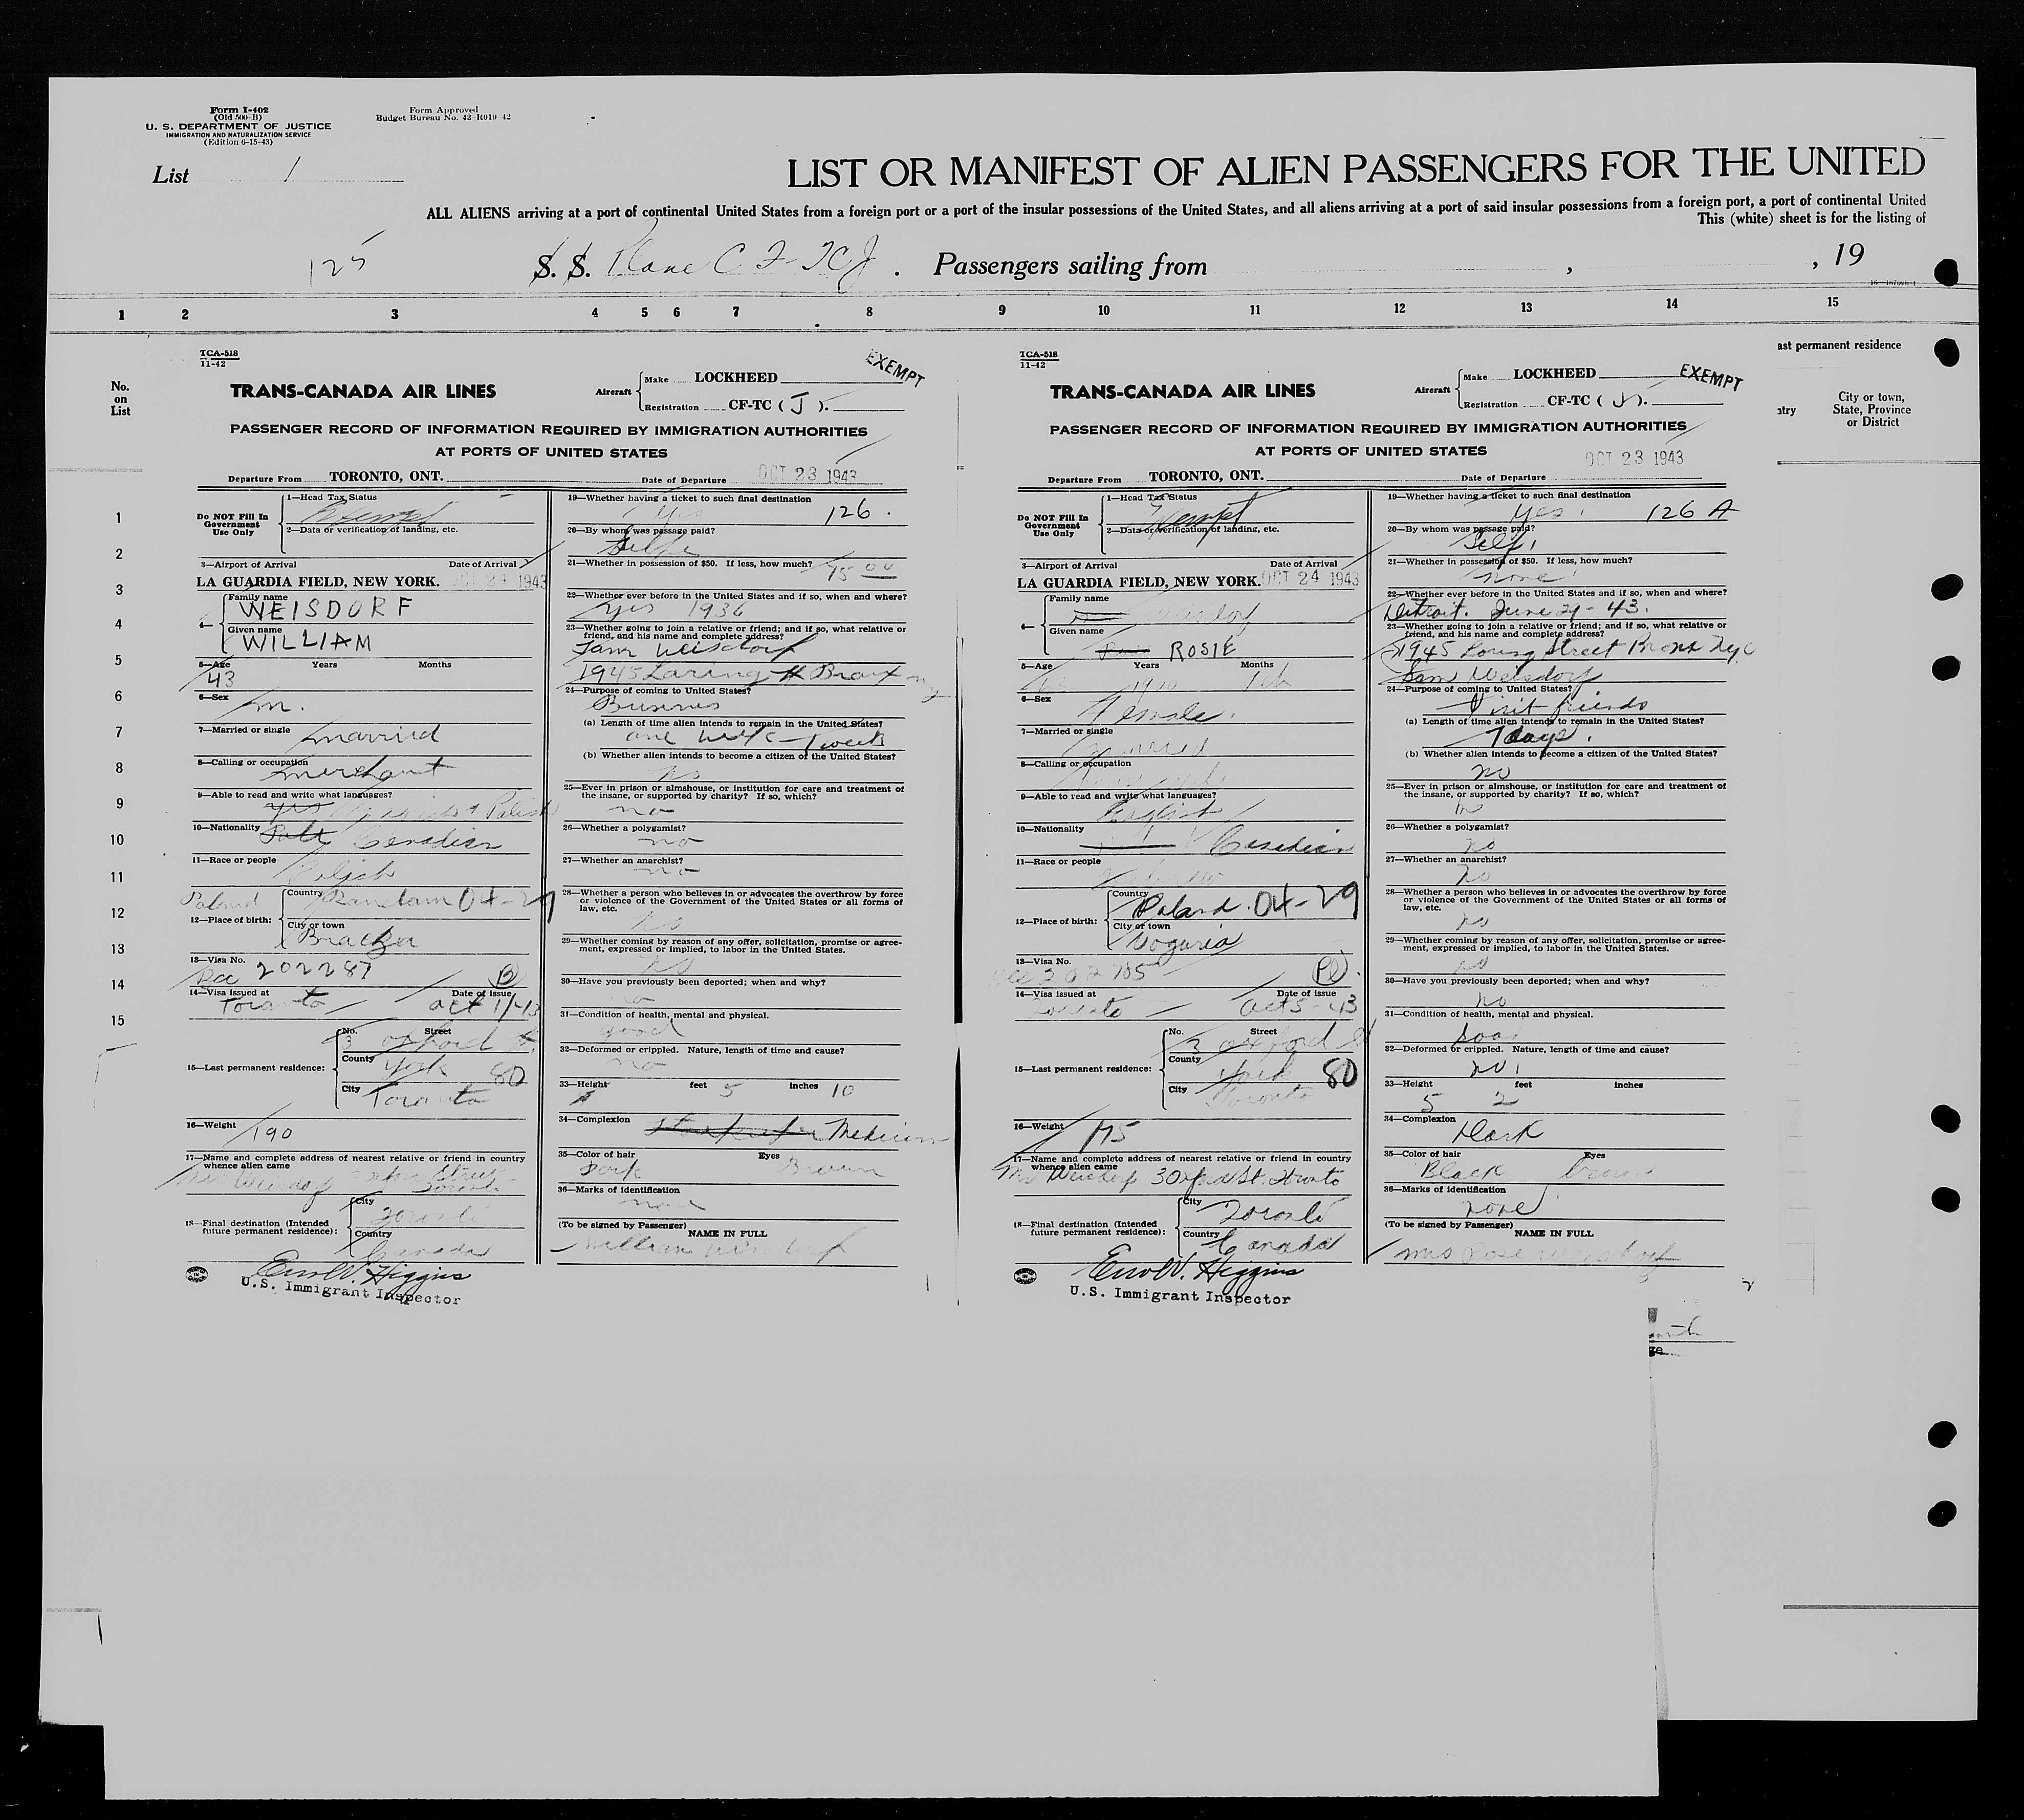 Form I-402
(Old 500-B)
U. S. DEPARTMENT OF JUSTICE
IMMIGRATION AND NATURALIZATION SERVICE
(Edition 6-15-43)
Form Approved
Budget Bureau No. 43-R019-42
List 1
LIST OR MANIFEST OF ALIEN PASSENGERS FOR THE UNITED
ALL ALIENS arriving at a port of continental United States from a foreign port or a port of the insular possessions of the United States, and all aliens arriving at a port of said insular possessions from a foreign port, a port of continental United
This (white) sheet is for the listing of
125
S. S. Plane C F-TCJ. Passengers sailing from , , 19
1 2 3 4 5 6 7 8 9 10 11 12 13 14 15
No.
on
List
1
2
3
4
5
6
7
8
9
10
11
12
13
14
15
TCA-518
11-42
EXEMPT
TRANS-CANADA AIR LINES
Aircraft
Make LOCKHEED
Registration CF-TC ( J ).
PASSENGER RECORD OF INFORMATION REQUIRED BY IMMIGRATION AUTHORITIES
AT PORTS OF UNITED STATES
Departure From TORONTO, ONT. Date of Departure OCT 23 1943
Do NOT Fill In
Government
Use Only
1—Head Tax Status
Exempt
2—Data or verification of landing, etc.
3—Airport of Arrival Date of Arrival
LA GUARDIA FIELD, NEW YORK. OCT 24 1943
4—
Family name
WEISDORF
Given name
WILLIAM
5—Age Years Months
43
6—Sex
m.
7—Married or single
married
8—Calling or occupation
merchant
9—Able to read and write what languages?
yes Polish
10—Nationality
Canadian
11—Race or people
Polish
Poland
12—Place of birth:
Country
04-29
City or town
13—Visa No.
202287
14—Visa issued at Date of issue
Toronto Oct 1/43
15—Last permanent residence:
No. Street
3 Oxford St.
County
York 80
City
Toronto
16—Weight
190
17—Name and complete address of nearest relative or friend in country
whence alien came
Weisdorf Street
Toronto
18—Final destination (Intended
future permanent residence):
City
Toronto
Country
Canada
Errol W. Higgins
U.S. Immigrant Inspector
19—Whether having a ticket to such final destination
yes 126.
20—By whom was passage paid?
Self
21—Whether in possession of $50. If less, how much?
75 00
22—Whether ever before in the United States and if so, when and where?
yes 1936
23—Whether going to join a relative or friend; and if so, what relative or
friend, and his name and complete address?
Sam Weisdorf
1945 Loring St Bronx ny
24—Purpose of coming to United States?
Business
(a) Length of time alien intends to remain in the United States?
one week - 1 week
(b) Whether alien intends to become a citizen of the United States?
no
25—Ever in prison or almshouse, or institution for care and treatment of
the insane, or supported by charity? If so, which?
no
26—Whether a polygamist?
no
27—Whether an anarchist?
no
28—Whether a person who believes in or advocates the overthrow by force
or violence of the Government of the United States or all forms of
law, etc.
no
29—Whether coming by reason of any offer, solicitation, promise or agree-
ment, expressed or implied, to labor in the United States.
no
30—Have you previously been deported; when and why?
no
31—Condition of health, mental and physical.
good
32—Deformed or crippled. Nature, length of time and cause?
no
33—Height feet inches
5 10
34—Complexion
Medium
35—Color of hair Eyes
Dark Brown
36—Marks of identification
none
(To be signed by Passenger) NAME IN FULL
William Weisdorf
TCA-518
11-42
EXEMPT
TRANS-CANADA AIR LINES
Aircraft
Make LOCKHEED
Registration CF-TC ( J ).
PASSENGER RECORD OF INFORMATION REQUIRED BY IMMIGRATION AUTHORITIES
AT PORTS OF UNITED STATES
Departure From TORONTO, ONT. Date of Departure OCT 23 1943
Do NOT Fill In
Government
Use Only
1—Head Tax Status
Exempt
2—Data or verification of landing, etc.
3—Airport of Arrival Date of Arrival
LA GUARDIA FIELD, NEW YORK. OCT 24 1943
4—
Family name
Weisdorf
Given name
ROSIE
5—Age Years Months
1910 Feb
6—Sex
Female.
7—Married or single
married
8—Calling or occupation
9—Able to read and write what languages?
English
10—Nationality
Canadian
11—Race or people
Hebrew
12—Place of birth:
Country
Poland. 04-29
City or town
13—Visa No.
14—Visa issued at Date of issue
Toronto Oct 5-43
15—Last permanent residence:
No. Street
3 Oxford St
County
York 80
City
Toronto
16—Weight
175
17—Name and complete address of nearest relative or friend in country
whence alien came
Mr Weisdorf 3 Oxford St. Toronto
18—Final destination (Intended
future permanent residence):
City
Toronto
Country
Canada
Errol W. Higgins
U.S. Immigrant Inspector
19—Whether having a ticket to such final destination
yes. 126 A
20—By whom was passage paid?
Self.
21—Whether in possession of $50. If less, how much?
none
22—Whether ever before in the United States and if so, when and where?
Detroit. June 29-43.
23—Whether going to join a relative or friend; and if so, what relative or
friend, and his name and complete address?
1945 Loring Street Bronx N.y.C
Sam Weisdorf
24—Purpose of coming to United States?
Visit friends
(a) Length of time alien intends to remain in the United States?
7 days.
(b) Whether alien intends to become a citizen of the United States?
no
25—Ever in prison or almshouse, or institution for care and treatment of
the insane, or supported by charity? If so, which?
no
26—Whether a polygamist?
no
27—Whether an anarchist?
no
28—Whether a person who believes in or advocates the overthrow by force
or violence of the Government of the United States or all forms of
law, etc.
no
29—Whether coming by reason of any offer, solicitation, promise or agree-
ment, expressed or implied, to labor in the United States.
no
30—Have you previously been deported; when and why?
no
31—Condition of health, mental and physical.
32—Deformed or crippled. Nature, length of time and cause?
no.
33—Height feet inches
5 2
34—Complexion
Dark
35—Color of hair Eyes
Black brown
36—Marks of identification
none
(To be signed by Passenger) NAME IN FULL
Mrs Rose Weisdorf
ast permanent residence
ntry
City or town,
State, Province
or District